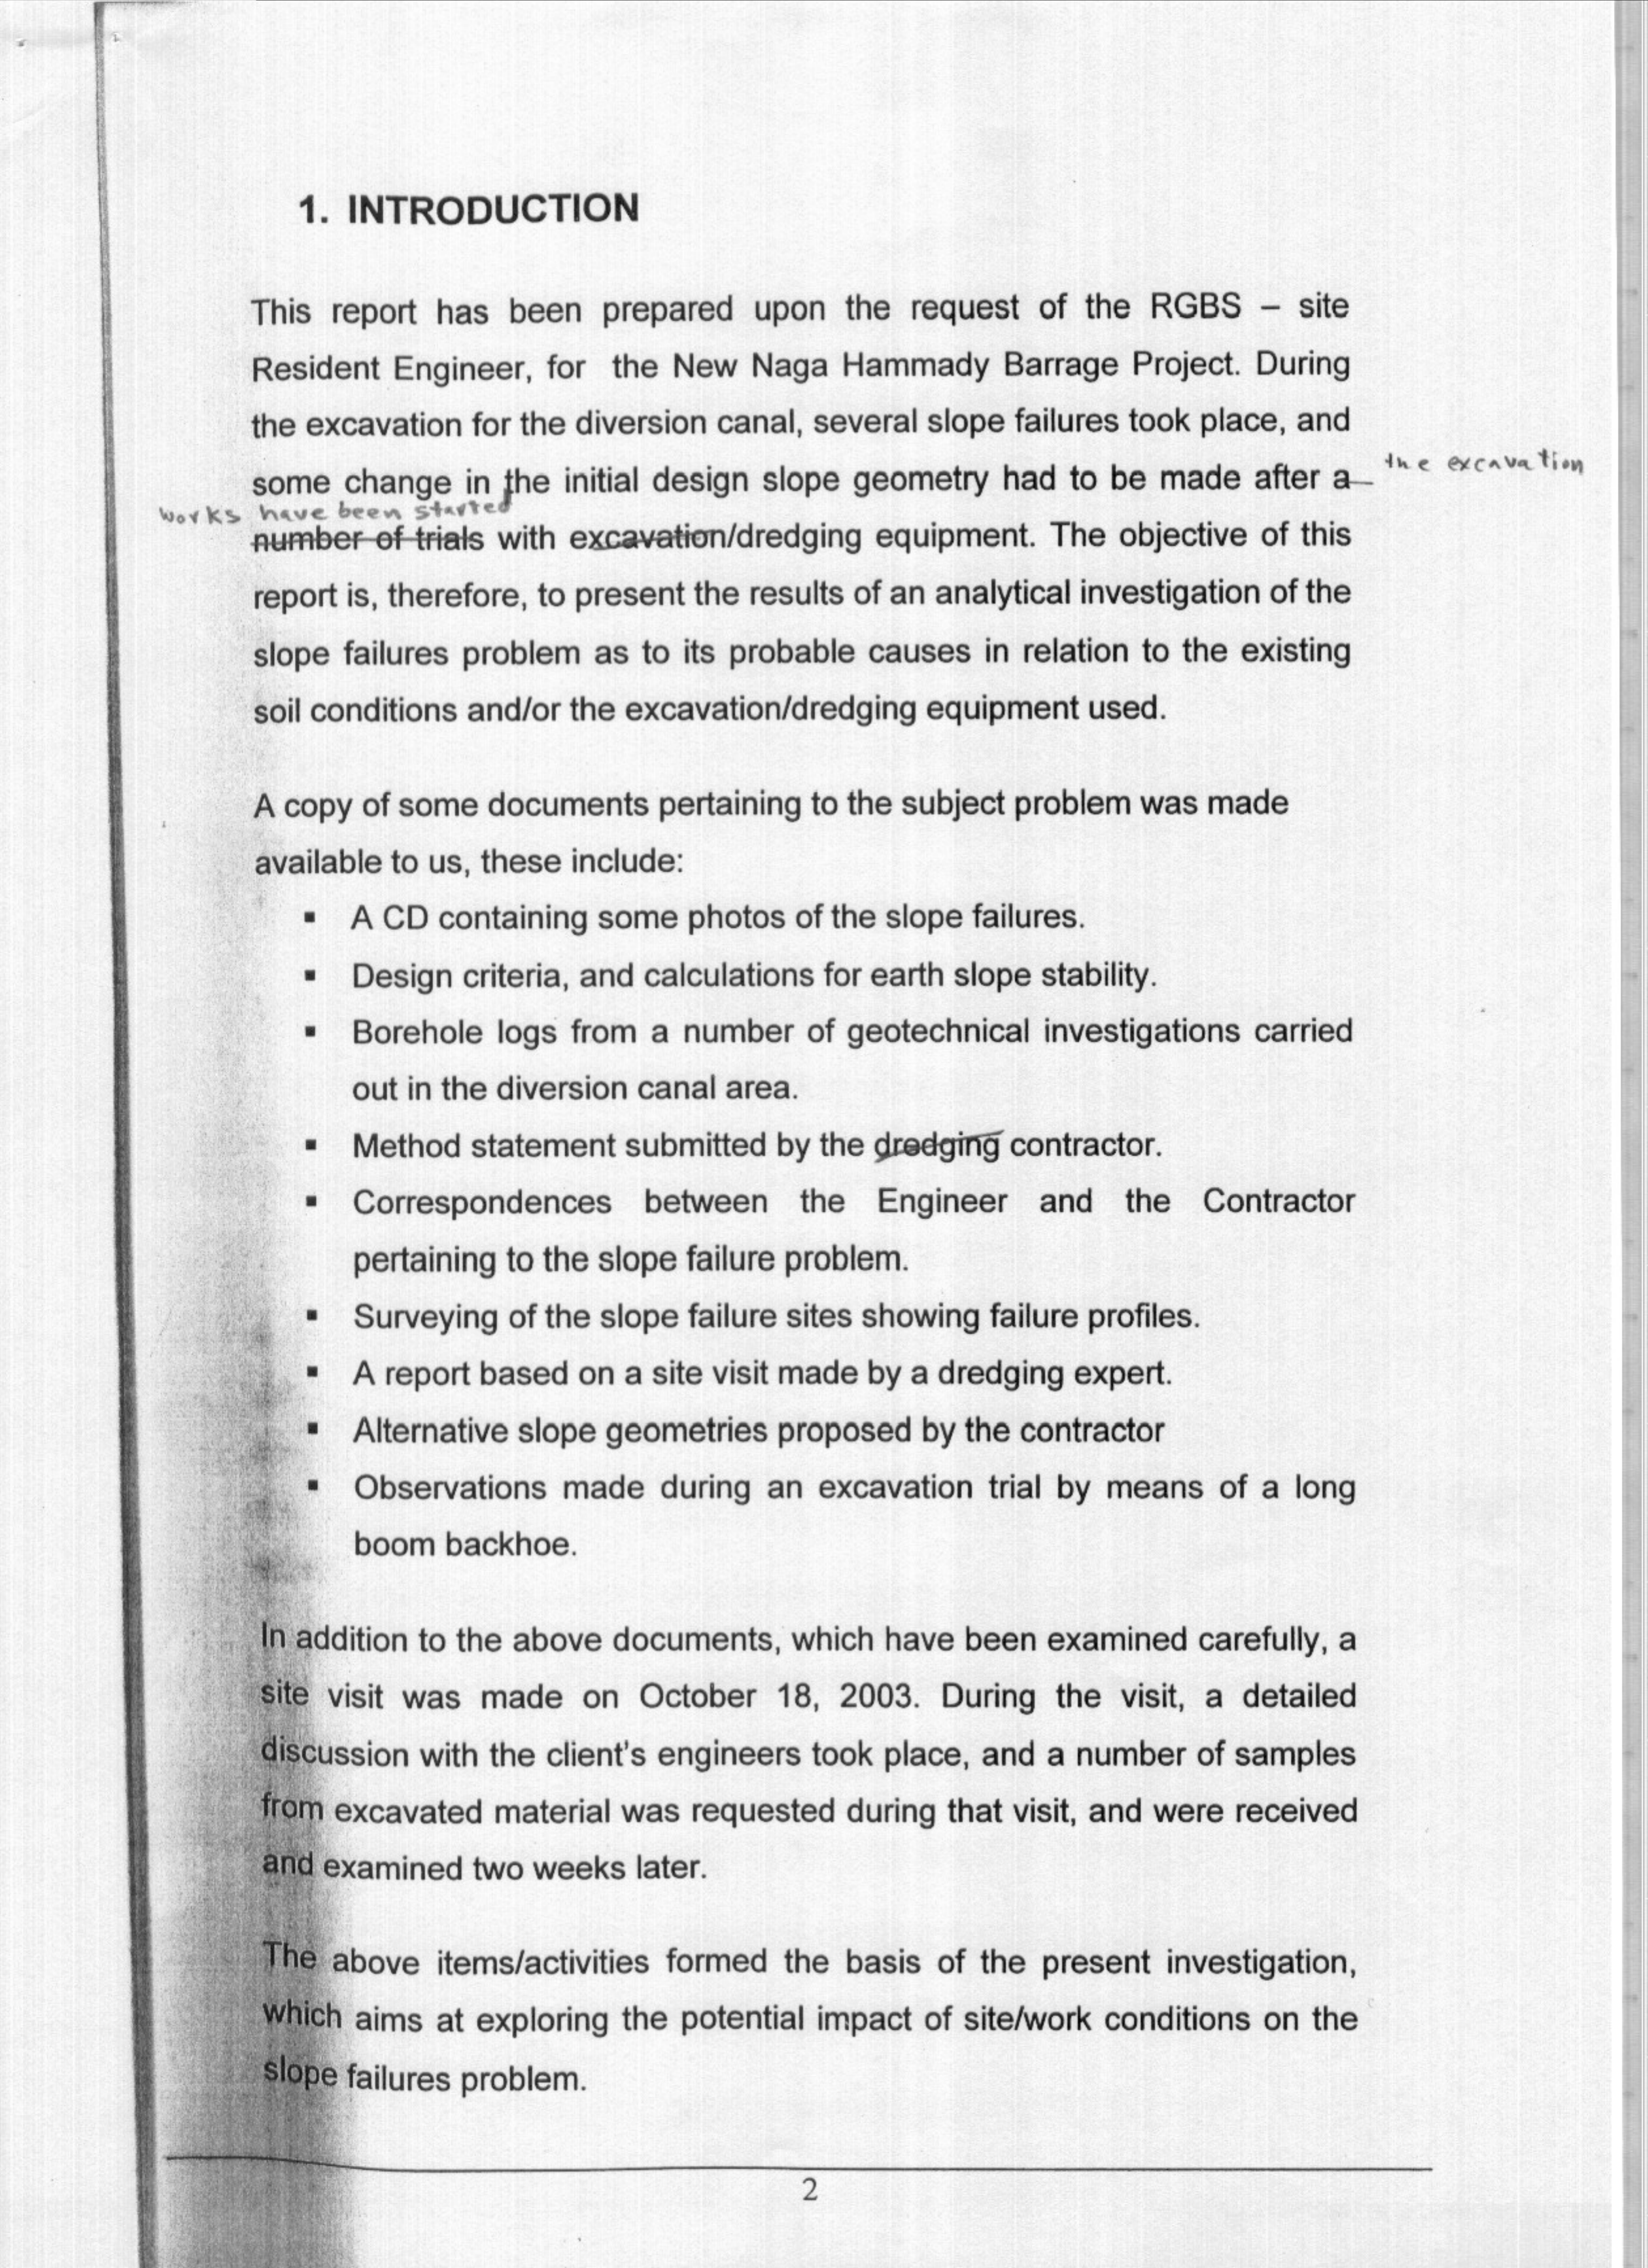 1. INTRODUCTION
This report has been prepared upon the request of the RGBS – site
Resident Engineer, for the New Naga Hammady Barrage Project. During
the excavation for the diversion canal, several slope failures took place, and
some change in the initial design slope geometry had to be made after a the excavation
works have been started
number of trials with excavation/dredging equipment. The objective of this
report is, therefore, to present the results of an analytical investigation of the
slope failures problem as to its probable causes in relation to the existing
soil conditions and/or the excavation/dredging equipment used.
A copy of some documents pertaining to the subject problem was made
available to us, these include:
▪ A CD containing some photos of the slope failures.
▪ Design criteria, and calculations for earth slope stability.
▪ Borehole logs from a number of geotechnical investigations carried
out in the diversion canal area.
▪ Method statement submitted by the dredging contractor.
▪ Correspondences between the Engineer and the Contractor
pertaining to the slope failure problem.
▪ Surveying of the slope failure sites showing failure profiles.
▪ A report based on a site visit made by a dredging expert.
▪ Alternative slope geometries proposed by the contractor
▪ Observations made during an excavation trial by means of a long
boom backhoe.
In addition to the above documents, which have been examined carefully, a
site visit was made on October 18, 2003. During the visit, a detailed
discussion with the client's engineers took place, and a number of samples
from excavated material was requested during that visit, and were received
and examined two weeks later.
The above items/activities formed the basis of the present investigation,
which aims at exploring the potential impact of site/work conditions on the
slope failures problem.
2